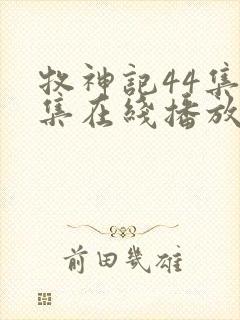 牧神記44集
集在綫播放
前田幾雄